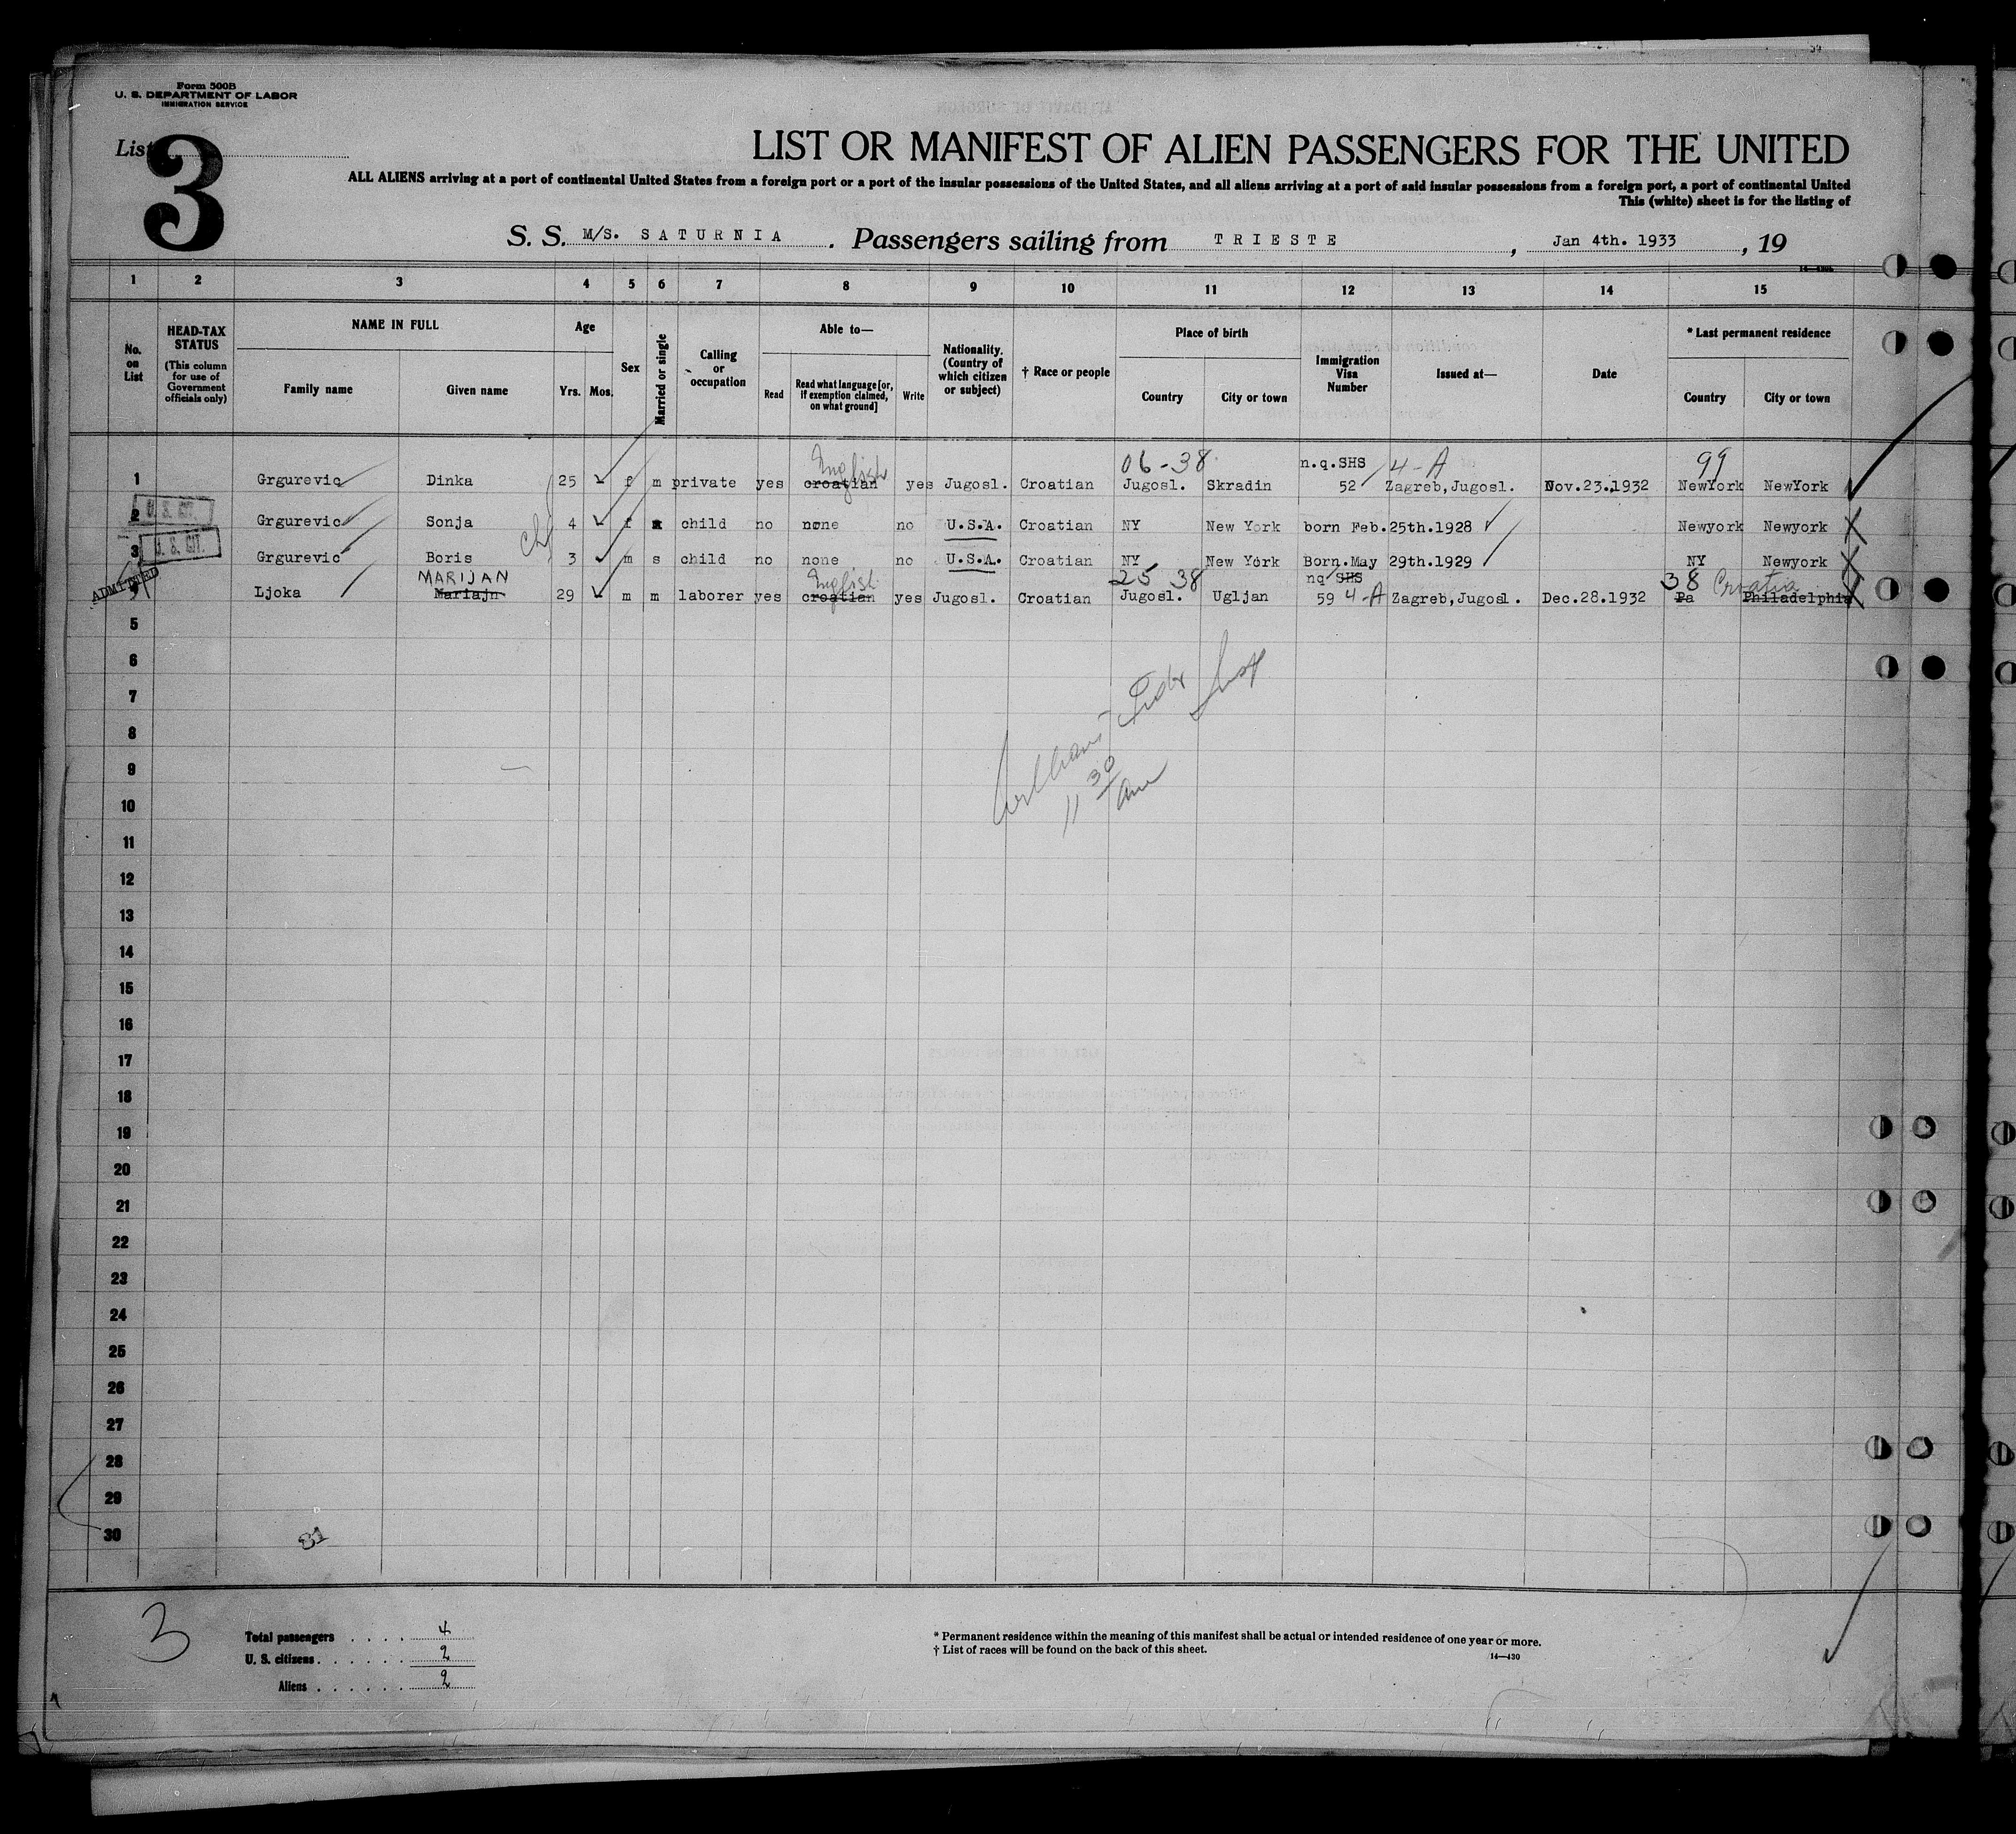 Form 500B
U. S. DEPARTMENT OF LABOR
IMMIGRATION SERVICE
List
3
LIST OR MANIFEST OF ALIEN PASSENGERS FOR THE UNITED
ALL ALIENS arriving at a port of continental United States from a foreign port or a port of the insular possessions of the United States, and all aliens arriving at a port of said insular possessions from a foreign port, a port of continental United
This (white) sheet is for the listing of
S. S. M/S. SATURNIA . Passengers sailing from TRIESTE , Jan 4th. 1933 , 19
1 2 3 4 5 6 7 8 9 10 11 12 13 14 15
No. on List
HEAD-TAX STATUS (This column for use of Government officials only)
NAME IN FULL
Family name Given name
Age
Yrs. Mos.
Sex
Married or single
Calling or occupation
Able to—
Read Read what language [or, if exemption claimed, on what ground] Write
Nationality. (Country of which citizen or subject)
† Race or people
Place of birth
Country City or town
Immigration Visa Number
Issued at—
Date
* Last permanent residence
Country City or town
English 06-38 n.q.SHS 4-A 99
1 Grgurevic Dinka 25 f m private yes croatian yes Jugosl. Croatian Jugosl. Skradin 52 Zagreb,Jugosl. Nov.23.1932 NewYork NewYork
U. S. CIT.
2 Grgurevic Sonja 4 f child no none no U.S.A. Croatian NY New York born Feb.25th.1928 Newyork Newyork
U. S. CIT.
3 Grgurevic Boris 3 m s child no none no U.S.A. Croatian NY New York Born.May 29th.1929 NY Newyork
ADMITTED MARIJAN English 25 38 nq SHS 38 Croatia
Ljoka Mariajn 29 m m laborer yes croatian yes Jugosl. Croatian Jugosl. Ugljan 59 4-A Zagreb,Jugosl. Dec.28.1932 Pa Philadelphia
5
6
7
8
9
11 30 am
10
11
12
13
14
15
16
17
18
19
20
21
22
23
24
25
26
27
28
29
30
31
3
Total passengers . . . . 4
U. S. citizens . . . . . . 2
Aliens . . . . . . 2
* Permanent residence within the meaning of this manifest shall be actual or intended residence of one year or more.
† List of races will be found on the back of this sheet.
14—430